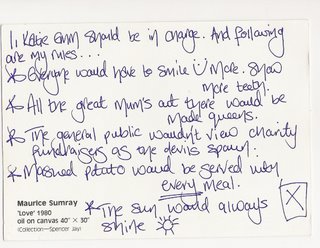 I, Katie Emm should be in charge. And following
are my rules...
* Everyone would have to smile more. Show
more teeth.
* All the great mum's out there would be
made queens.
* The general public wouldn't view charity
fundraisers as the devils spawn.
* Mashed potato would be served with
every meal.
* The sun would always
shine
Maurice Sumray
'Love' 1980
oil on canvas 40" × 30"
(Collection—Spencer Jay)
X